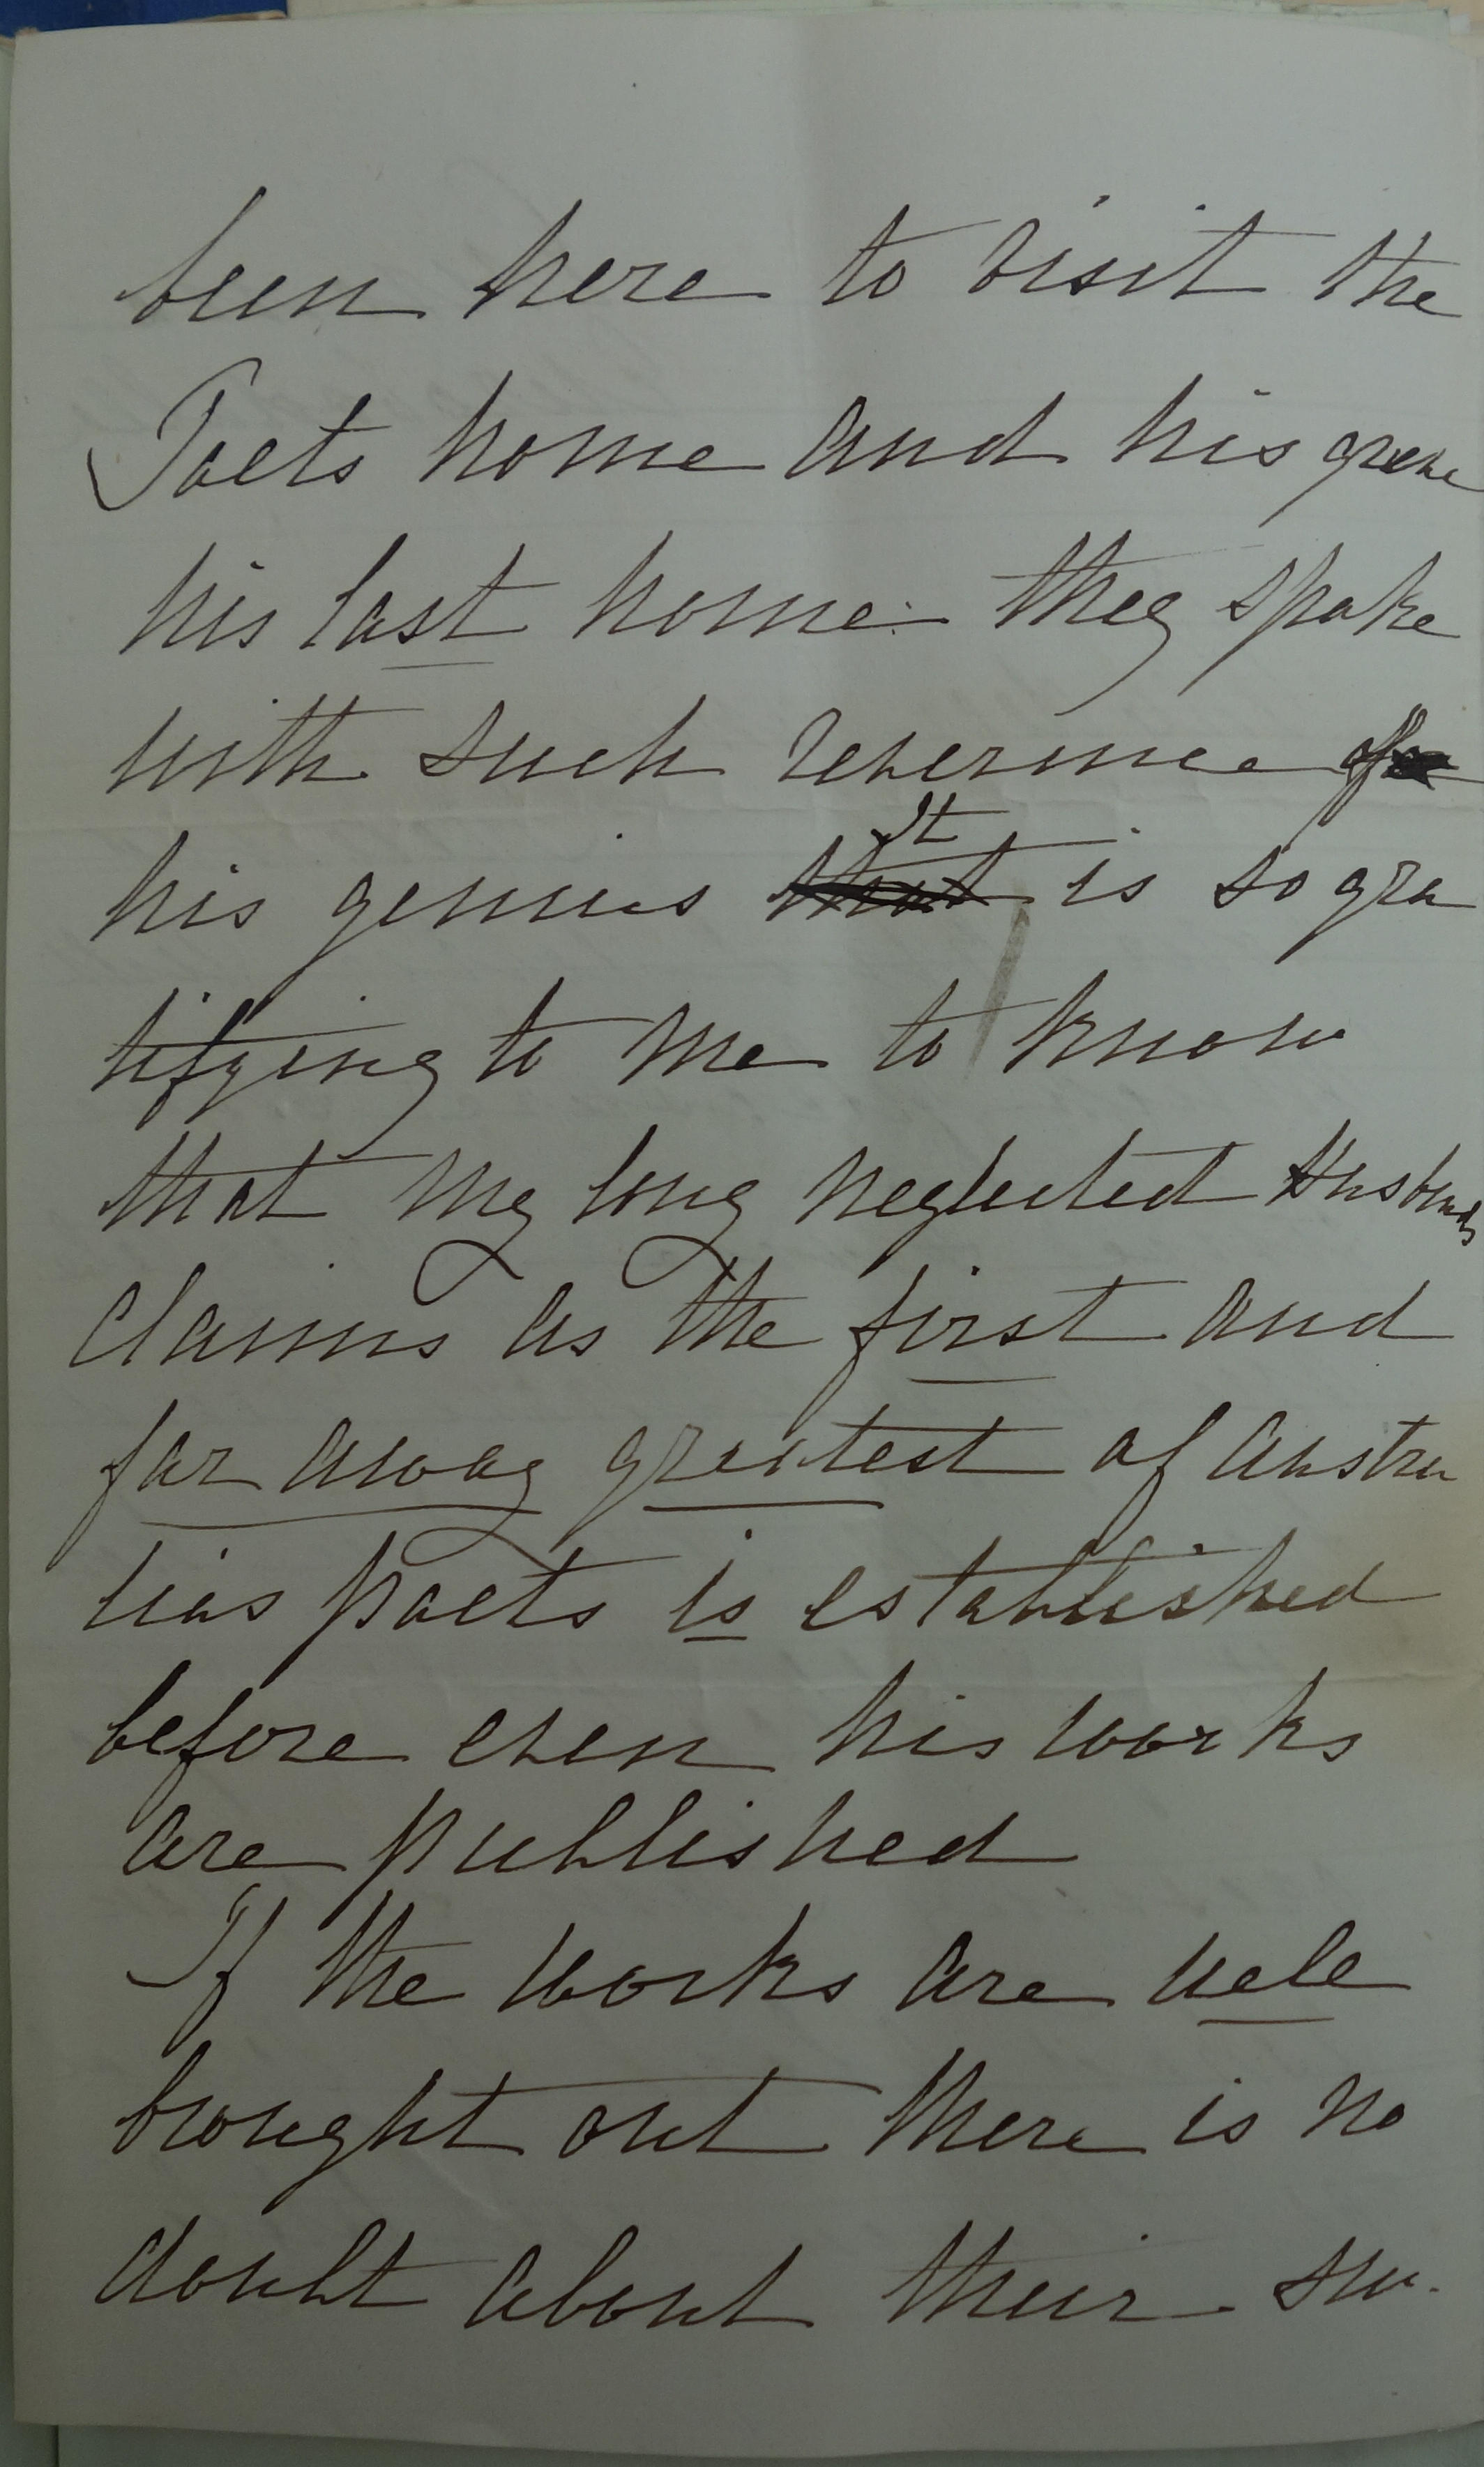 been here to visit the
Poets home and his grave
his last home: they spoke
with such reverence of
his genius that It is so gra
tifying to me to know
that my long neglected Husbands
claims as the first and
far away greatest of Austra
lias poets is established
before even his works
are published
If the works are well
brought out there is no
doubt about their suc-